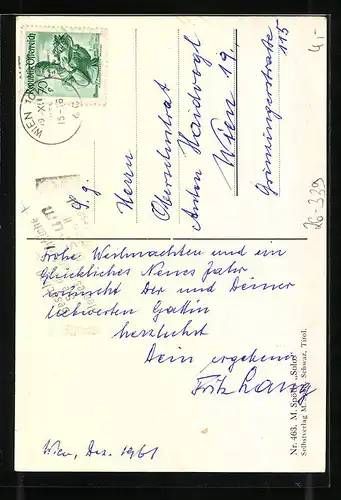 4,-
Republik Österreich
WIEN
S. g.
Herrn
Oberschulrat
Anton Haidvogl
Wien 19,
Grinzingerstraße
115
26-339
Frohe Weihnachten und ein
Glückliches Neues Jahr
wünscht Dir und Deiner
liebwerten Gattin
herzlichst
Dein ergebener
Fritz Lang
Wien, Dez. 1961
Nr. 463. M. Spötl: „Solo“
Selbstverlag M. Spötl, Schwaz, Tirol.